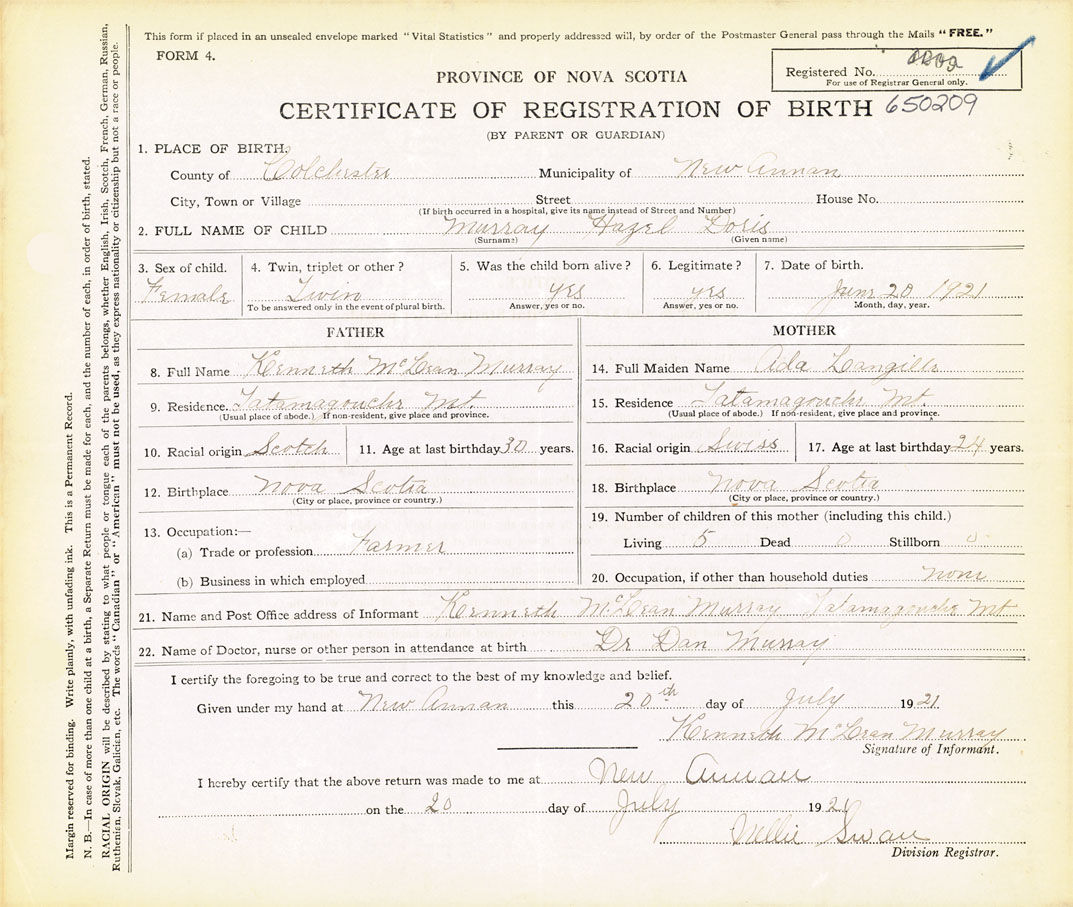 This form if placed in an unsealed envelope marked "Vital Statistics" and properly addressed will, by order of the Postmaster General pass through the Mails "FREE."
FORM 4.
PROVINCE OF NOVA SCOTIA
Registered No.
For use of Registrar General only.
CERTIFICATE OF REGISTRATION OF BIRTH 650209
(BY PARENT OR GUARDIAN)
1. PLACE OF BIRTH.
County of Colchester Municipality of New Annan
City, Town or Village Street House No.
(If birth occurred in a hospital, give its name instead of Street and Number)
2. FULL NAME OF CHILD Murray Hazel Doris
(Surname) (Given name)
3. Sex of child. 4. Twin, triplet or other? 5. Was the child born alive? 6. Legitimate? 7. Date of birth.
Female Twin yes yes June 20 1921
To be answered only in the event of plural birth. Answer, yes or no. Answer, yes or no. Month, day, year.
FATHER
8. Full Name Kenneth McLean Murray
9. Residence. Tatamagouche Mt.
(Usual place of abode.) If non-resident, give place and province.
10. Racial origin Scotch 11. Age at last birthday 30 years.
12. Birthplace Nova Scotia
(City or place, province or country.)
13. Occupation:—
(a) Trade or profession Farmer
(b) Business in which employed
MOTHER
14. Full Maiden Name Ada Langille
15. Residence Tatamagouche Mt.
(Usual place of abode.) If non-resident, give place and province.
16. Racial origin Swiss 17. Age at last birthday 24 years.
18. Birthplace Nova Scotia
(City or place, province or country.)
19. Number of children of this mother (including this child.)
Living 5 Dead 0 Stillborn 0
20. Occupation, if other than household duties none
21. Name and Post Office address of Informant Kenneth McLean Murray Tatamagouche Mt
22. Name of Doctor, nurse or other person in attendance at birth Dr Dan Murray
I certify the foregoing to be true and correct to the best of my knowledge and belief.
Given under my hand at New Annan this 20th day of July 1921.
Kenneth McLean Murray
Signature of Informant.
I hereby certify that the above return was made to me at New Annan
on the 20 day of July 1921
Nellie Swan
Division Registrar.
Margin reserved for binding. Write plainly, with unfading ink. This is a Permanent Record.
N. B.—In case of more than one child at a birth, a Separate Return must be made for each, and the number of each, in order of birth, stated.
RACIAL ORIGIN will be described by stating to what people or tongue each of the parents belongs, whether English, Irish, Scotch, French, German, Russian,
Ruthenian, Slovak, Galician, etc. The words "Canadian" or "American" must not be used, as they express nationality or citizenship but not a race or people.